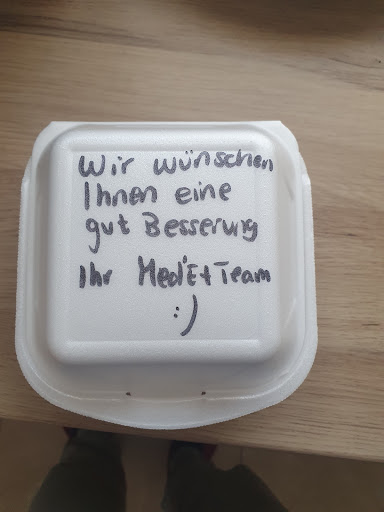 Wir wünschen
Ihnen eine
gut Besserung
Ihr Med'Et Team
:)